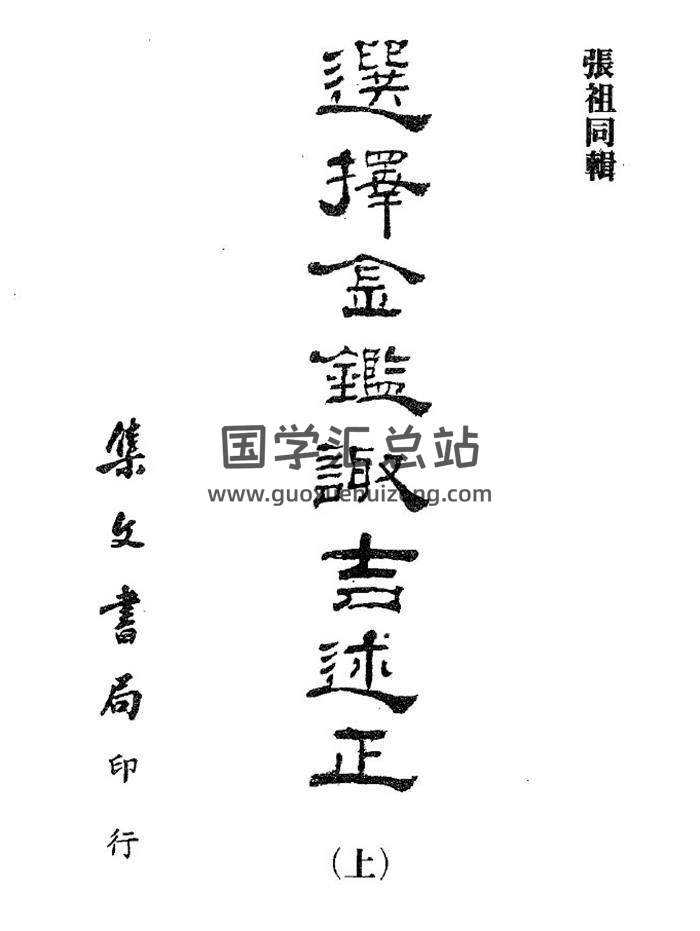 張祖同輯
選擇金鑑諏吉述正
(上)
集文書局印行
国学汇总站
www.guoxuehuizong.com